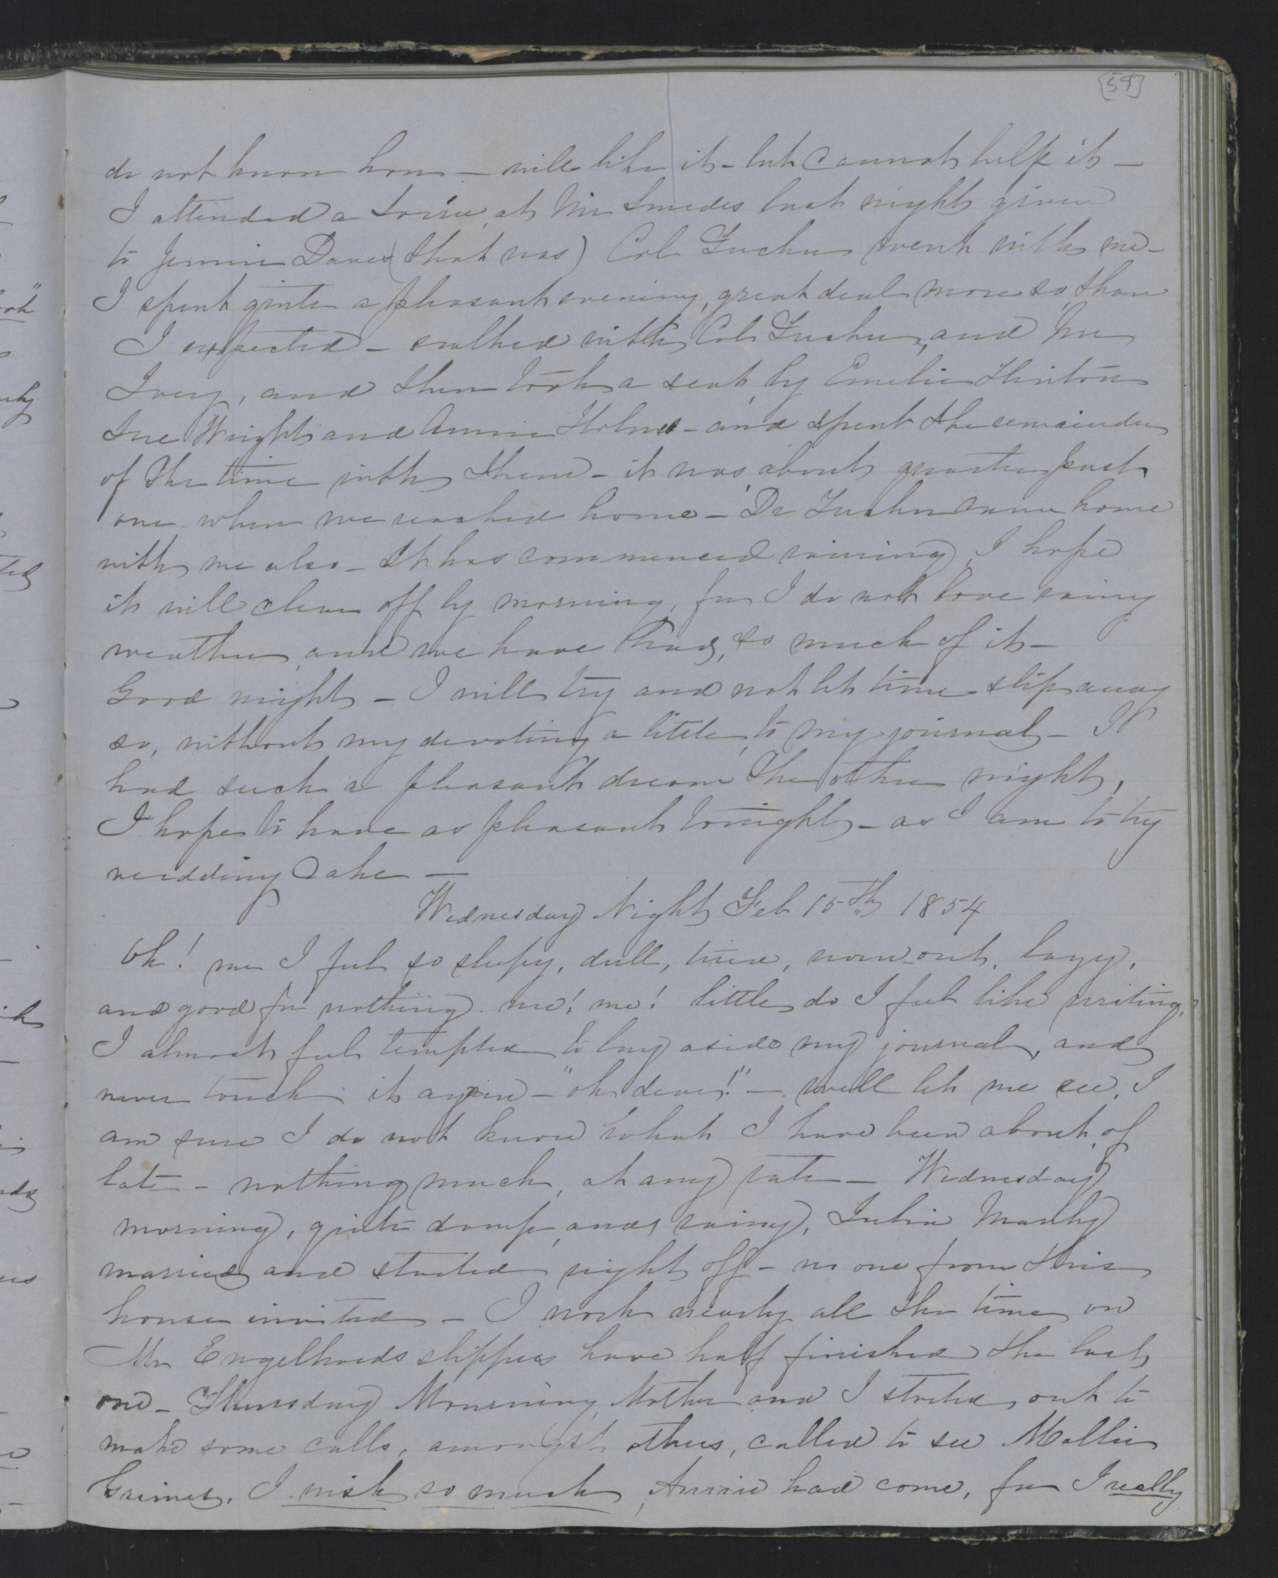 [59]
do not know how — will like it – but cannot help it —
I attended a Soiree, at Mr Smedes last night given
to Jennie Daves (that was) Col Tucker went with me –
I spent quite a pleasant evening, great deal more so than
I expected – walked with Col Tucker, and Mr
Ivey, and then took a seat by Emelie Hinton
Sue Wright and Annie Holmes – and spent the remainder
of the time with them – it was about quarter past
one when we reached home – Dr Tucker came home
with me also – It has commenced raining, I hope
it will clear off by morning, for I do not love rainy
weather, and we have had, so much of it –
Good night – I will try and not let time slip away
so, without my devoting a little to my journal – I
had such a pleasant dream the other night,
I hope to have as pleasant tonight – as I am to try
wedding cake —
Wednesday Night Feb 15th 1854
Oh! me I feel so sleepy, dull, tired, worn out, lazy,
and good for nothing. me! me! little do I feel like writing,
I almost feel tempted to lay aside my journal, and
never touch it again – "oh dear!" – well let me see, I
am sure I do not know what I have been about of
late – nothing much, at any rate — Wednesday
morning, quite damp, and rainy, Julia Manly
married and started right off – no one from this
house invited – I work nearly all the time on
Mr Engelhards slippers have half finished the last
one – Thursday Morning Mother and I started out to
make some calls, amongst others, called to see Mollie
Grimes. I wish so much, Annie had come, for I really